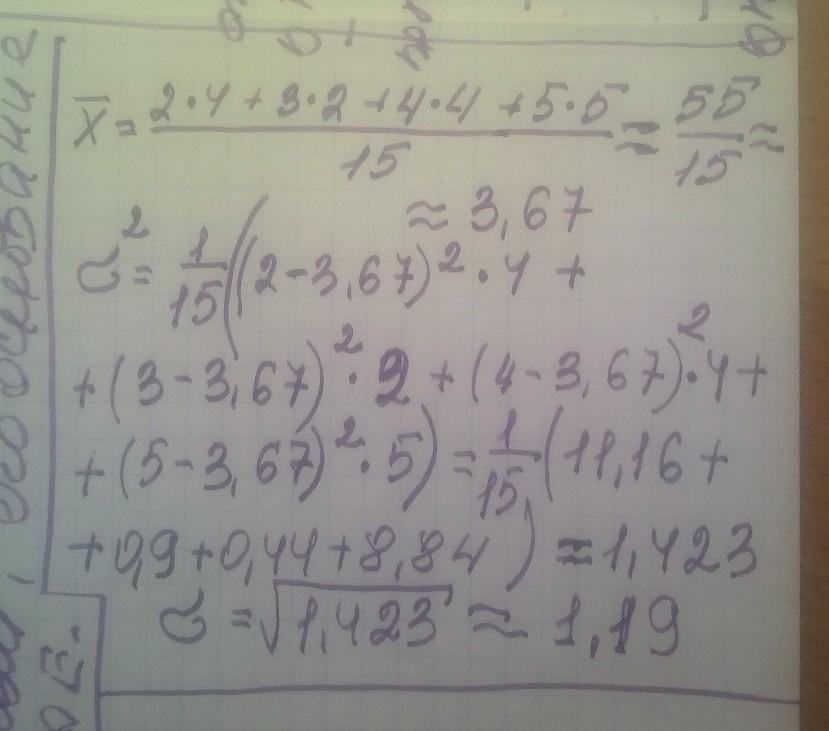 x̄ = (2·4 + 3·2 + 4·4 + 5·5)/15 = 55/15 ≈
≈ 3,67
σ² = 1/15((2-3,67)²·4 +
+(3-3,67)²·2 + (4-3,67)²·4 +
+(5-3,67)²·5) = 1/15(11,16 +
+0,9+0,44+8,84) = 1,423
σ = √1,423 ≈ 1,19